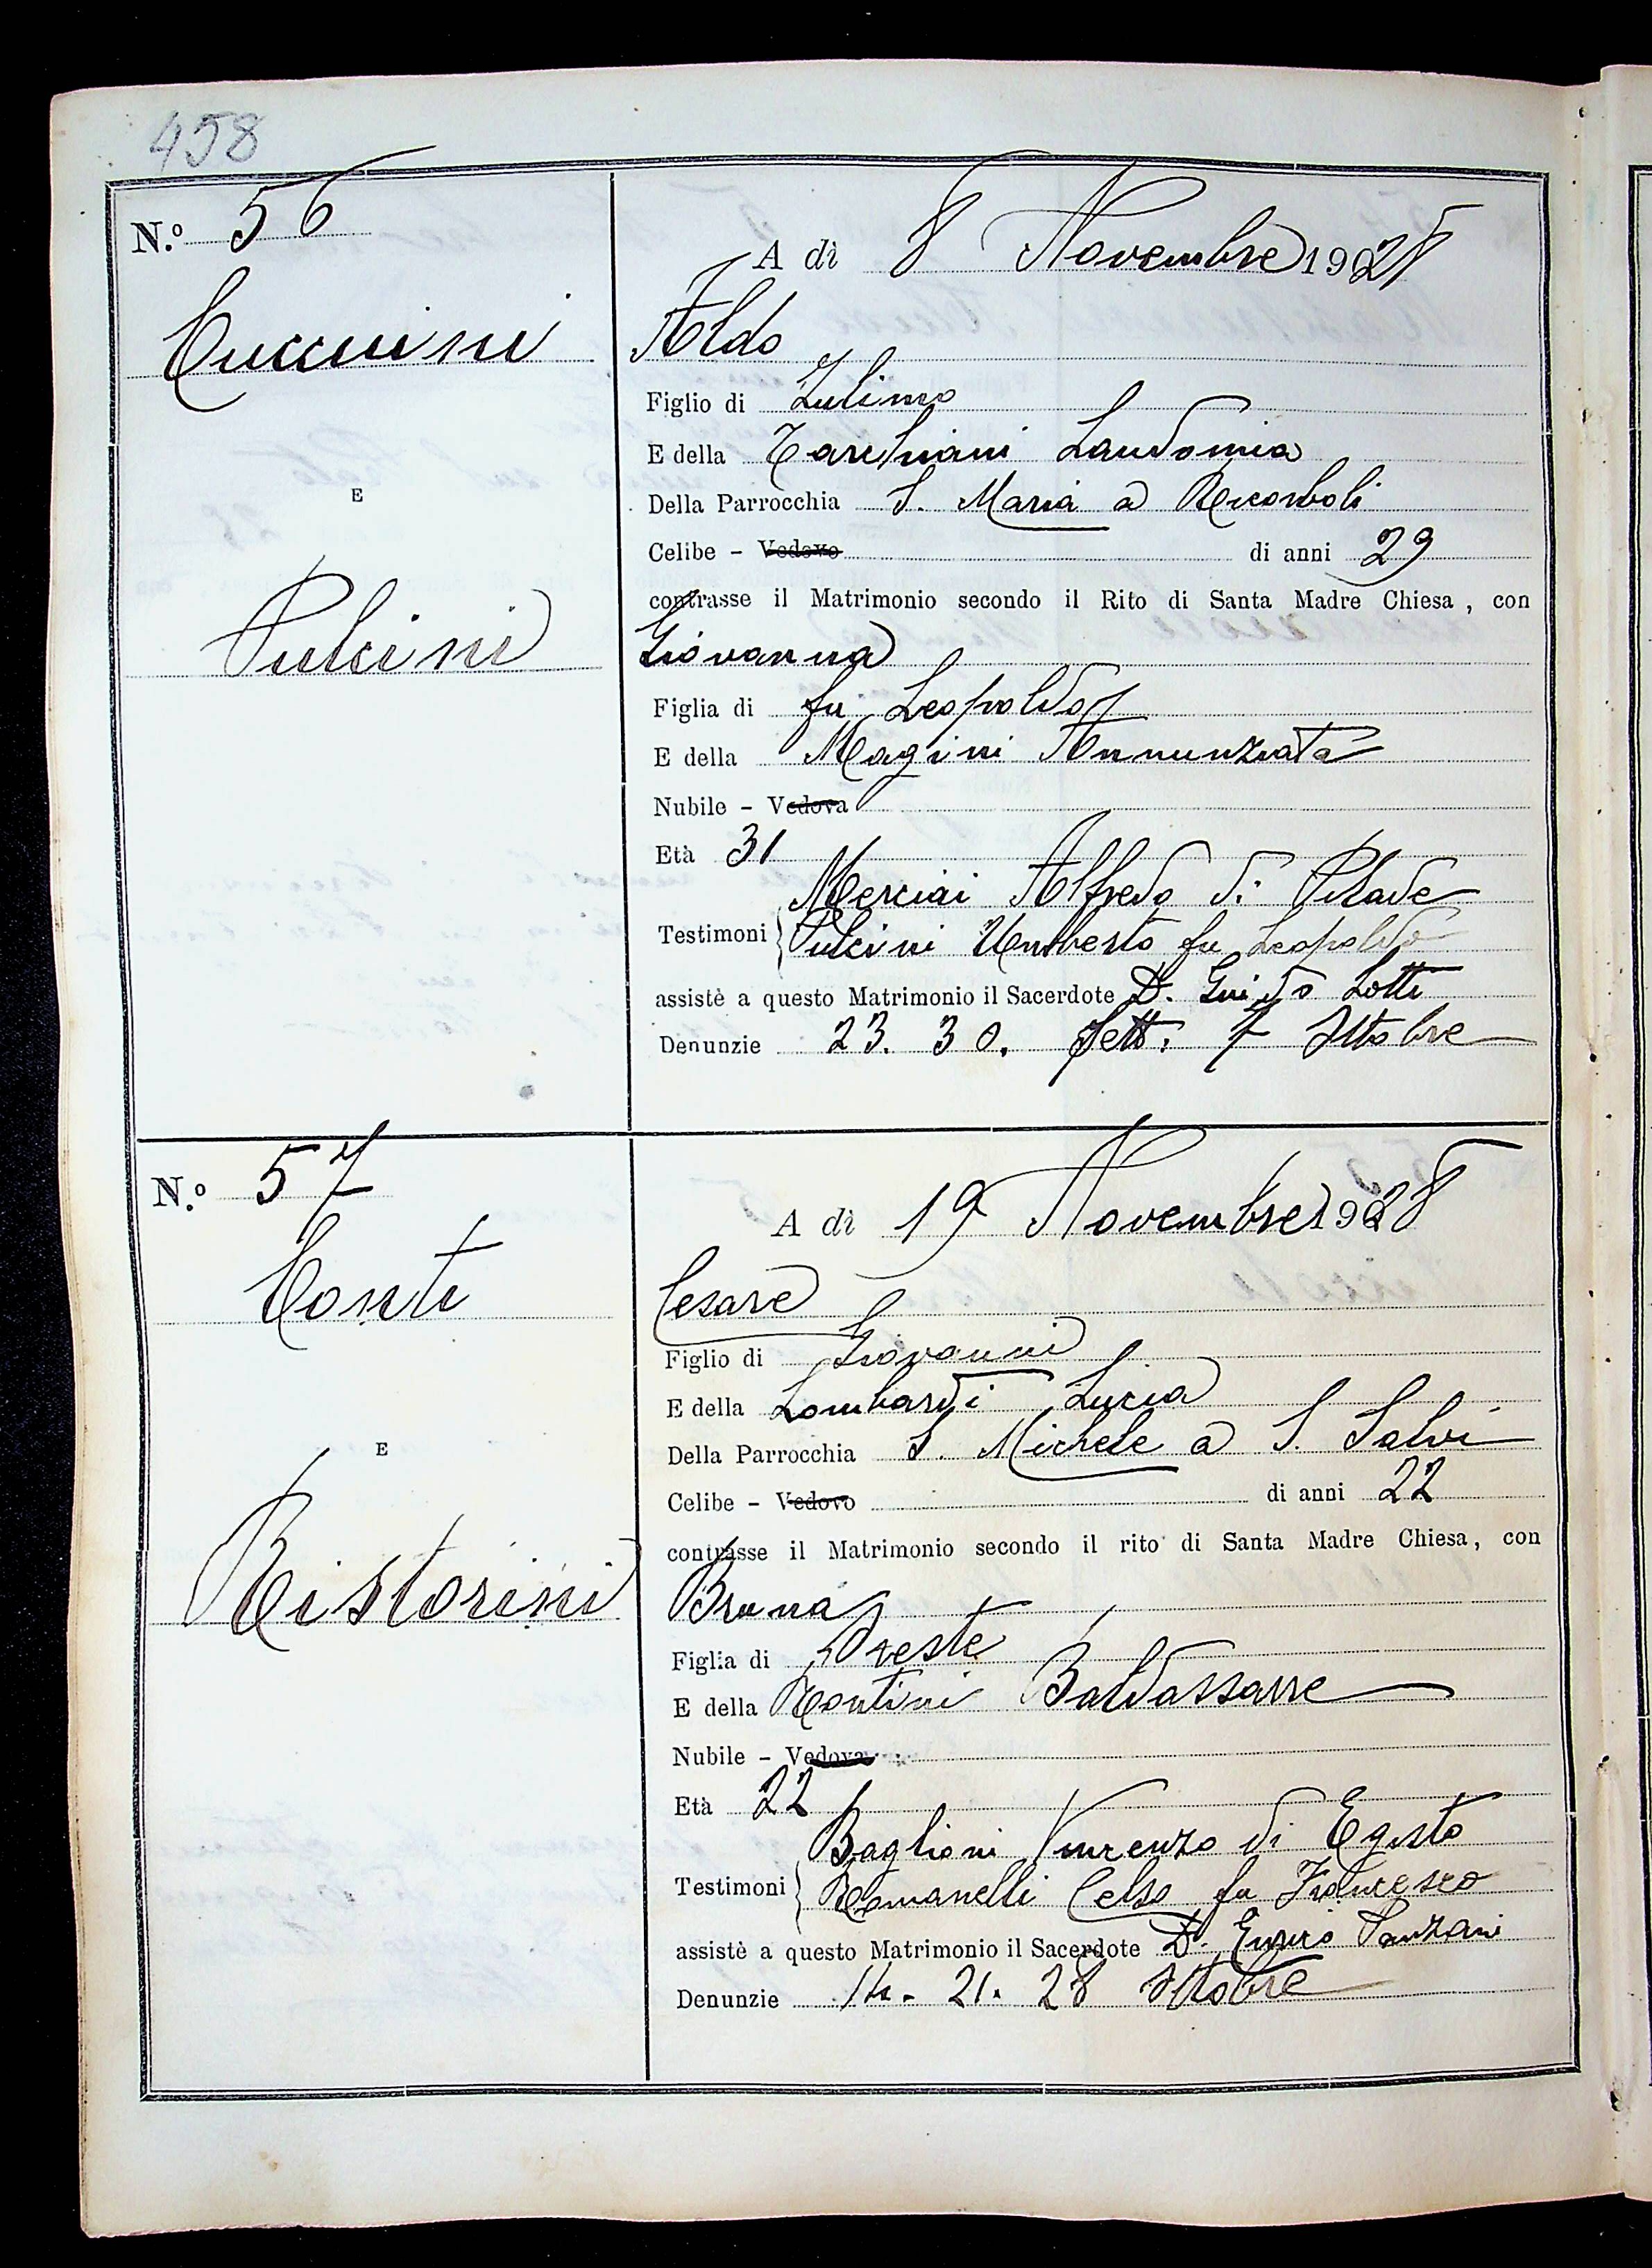 458
N.º 56
A dì 8 Novembre 1928
Cuccuini
Aldo
Figlio di Zulimo
E della Tarchiani Laudomia
E
Della Parrocchia S. Maria a Ricorboli
Celibe - Vedovo di anni 29
contrasse il Matrimonio secondo il Rito di Santa Madre Chiesa, con
Pulcini
Giovanna
Figlia di fu Leopoldo
E della Magini Annunziata
Nubile - Vedova
Età 31
Merciai Alfredo di Pilade
Testimoni Pulcini Umberto fu Leopoldo
assistè a questo Matrimonio il Sacerdote D. Guido Lotti
Denunzie 23. 30. Sett. 7 Ottobre
N.º 57
A dì 19 Novembre 1928
Conti
Cesare
Figlio di Giovanni
E della Lombardi Lucia
E
Della Parrocchia S. Michele a S. Salvi
Celibe - Vedovo di anni 22
contrasse il Matrimonio secondo il rito di Santa Madre Chiesa, con
Ristorini
Bruna
Figlia di Oreste
E della Contini Baldassarre
Nubile - Vedova
Età 22
Baglioni Vincenzo di Egisto
Testimoni Romanelli Celso fu Francesco
assistè a questo Matrimonio il Sacerdote D. Enrico
Denunzie 14. 21. 28 Ottobre